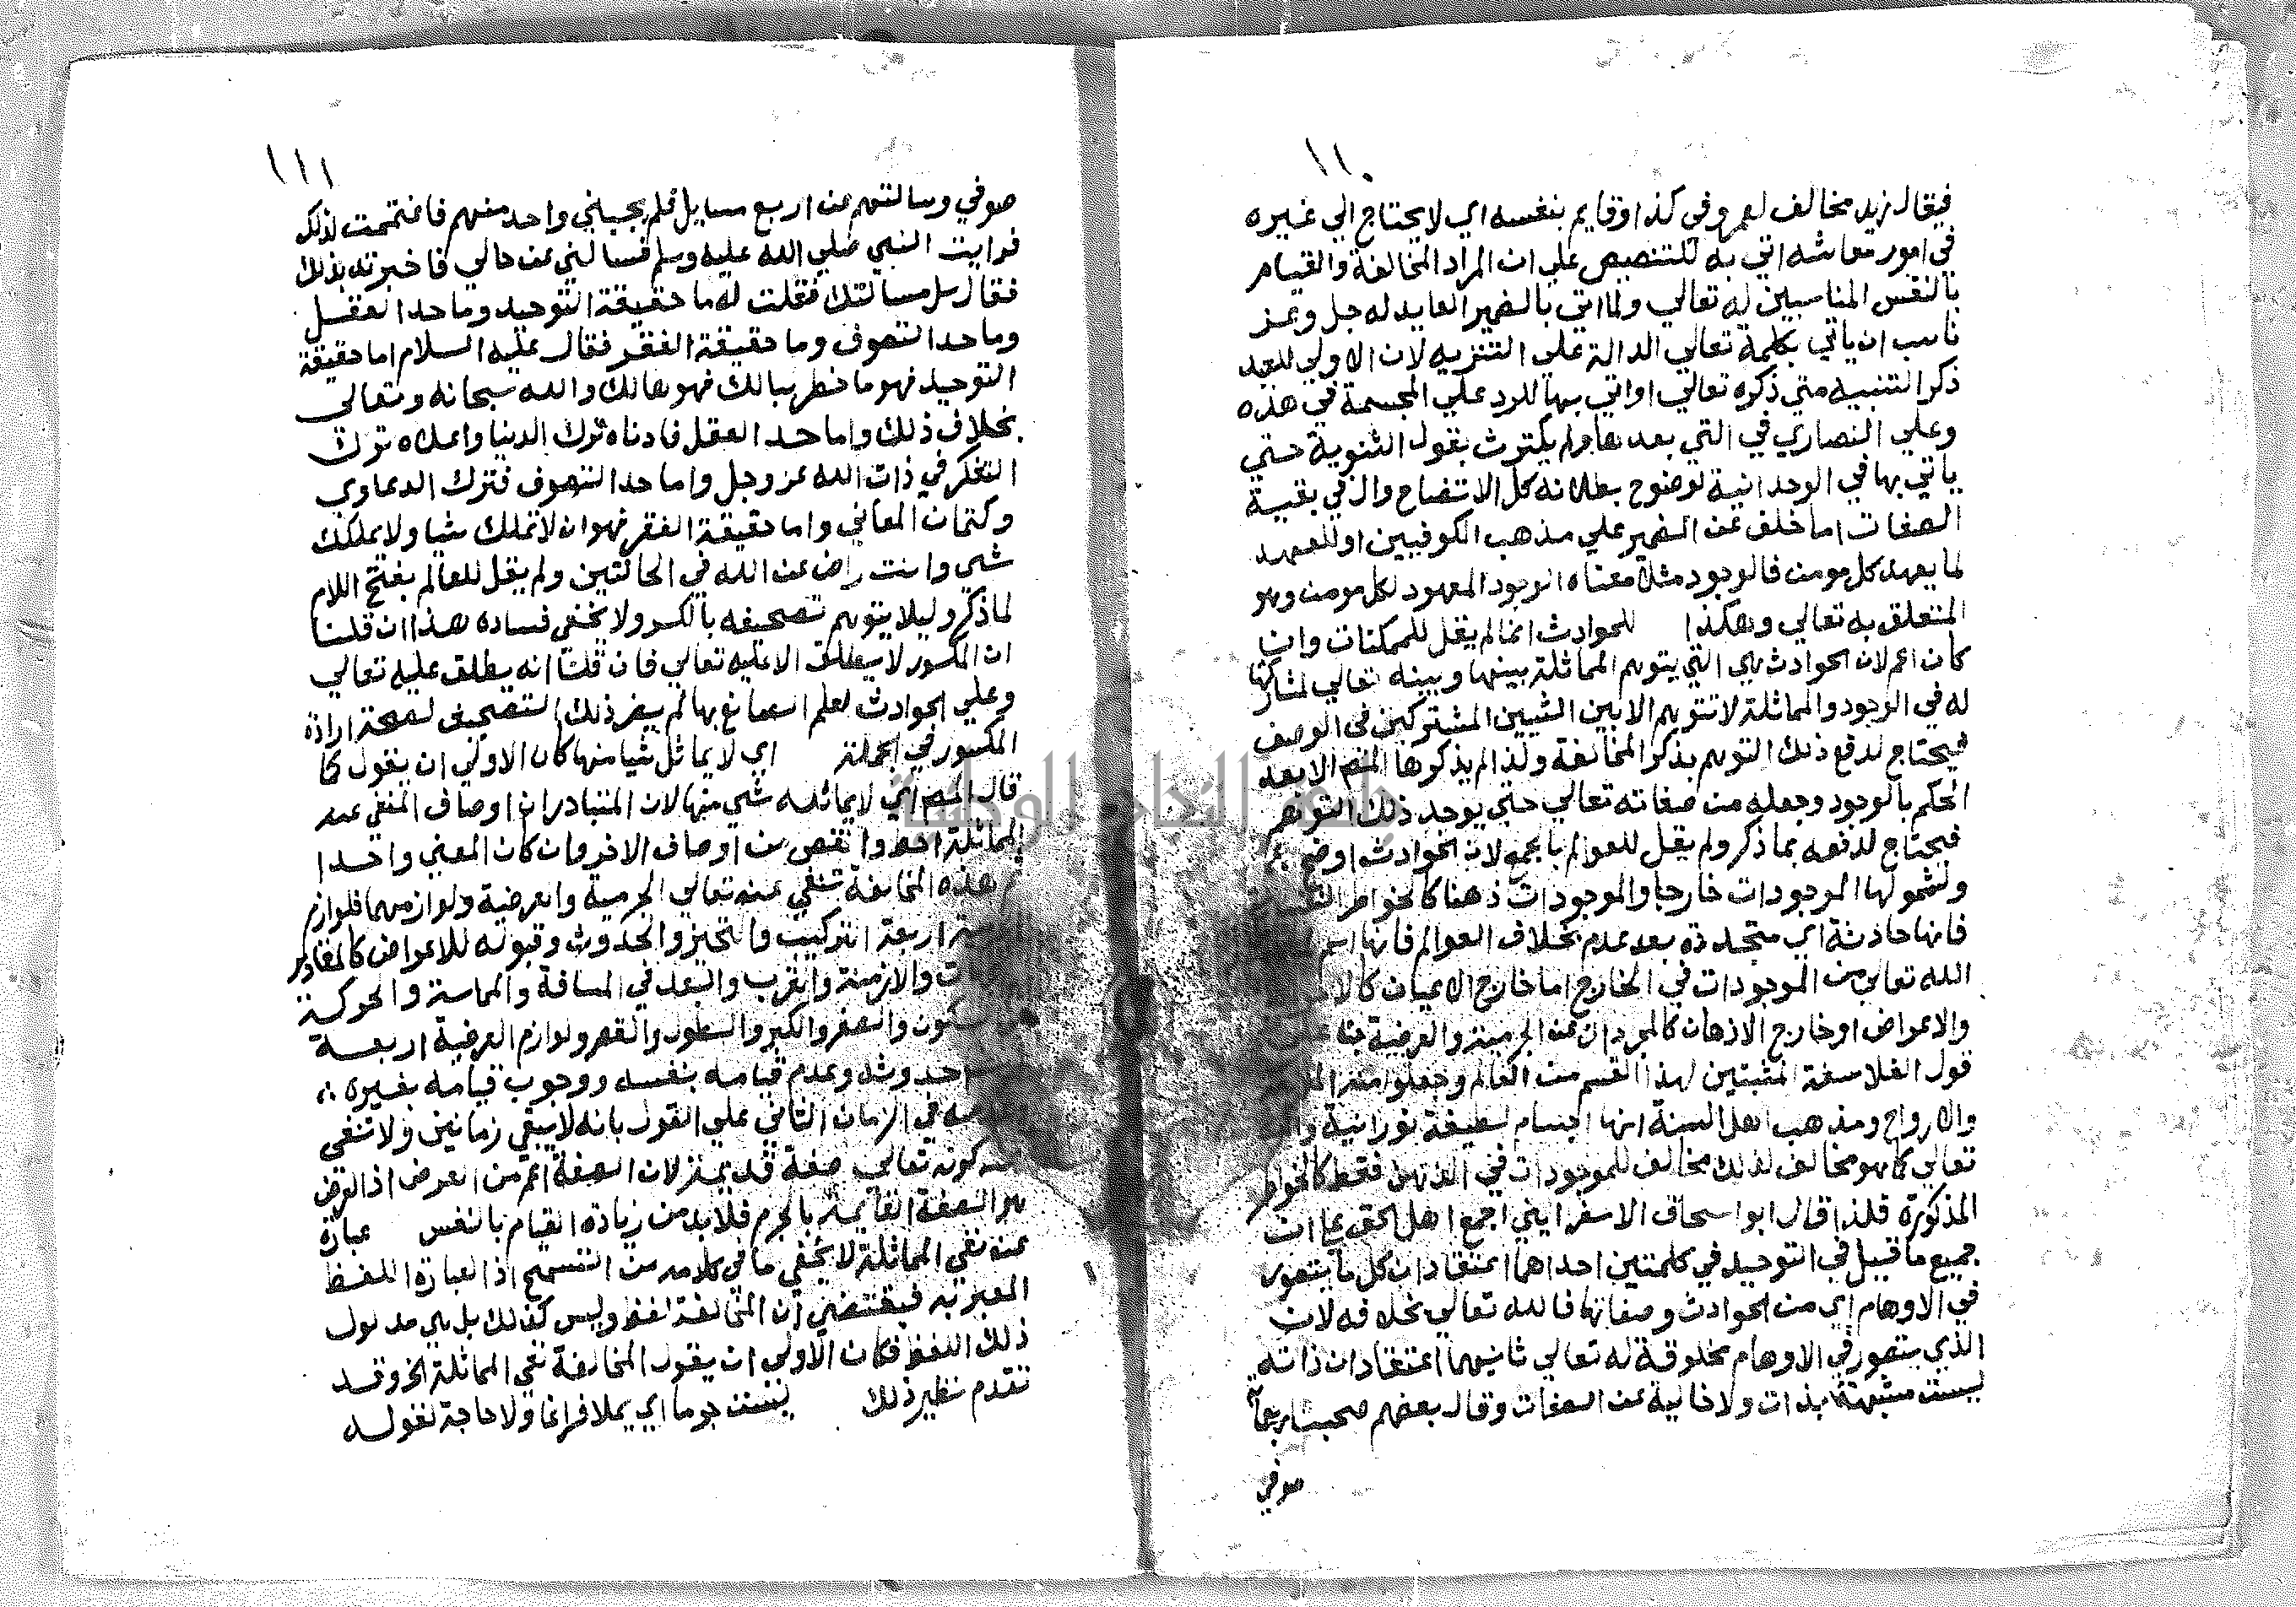 ١١٠
فيقال زيد مخالف لعمرو في كذا وقايم بنفسه اي لا يحتاج الي غيره
في امور معاشه اتي به للتنصيص علي ان المراد المخالفة والقيام
بالنفس المناسبين له تعالي ولما اتي بالضمير العايد له جل وعز
ناسب ان ياتي بكلمة تعالي الدالة علي التنزيه لان الاولي للعبد
ذكر التنبيه متي ذكره تعالي او اتي بها للرد علي المجسمة في هذه
وعلي النصاري في التي بعدها ولم يكترث بقول الثنوية حتي
ياتي بها في الوحدانية لوضوح بطلانه كل الاتضاح وال في بقية
الصفات اما خلف عن الضمير علي مذهب الكوفيين او للعهد
لما يعهد كل مومن فالوجود مثلا معناه الوجود المعهود لكل مومن وهو
المتعلق به تعالي وهكذا للحوادث انما لم يقل للممكنات وان
كان اعم لان الحوادث هي التي يتوهم المماثلة بينها وبينه تعالي لمشاركتها
له في الوجود والمماثلة لا تتوهم الا بين الشيين المشتركين في الوصف
فيحتاج لدفع ذلك التوهم بذكر المخالفة ولذا لم يذكرها المصم الا بعد
الحكم بالوجود وجعله من صفاته تعالي حتي يوجد ذلك التوهم
فيحتاج لدفعه بما ذكر ولم يقل للعوالم بالجمع لان الحوادث اوضح
ولشمولها الموجودات خارجا والموجودات ذهنا كالخواطر
فانها حادثة اي متجددة بعد عدم بخلاف العوالم فانها
الله تعالي من الموجودات في الخارج اما خارج الاعيان
والاعراض او خارج الاذهان كالمجردات عن الجرمية والعرضية بناء علي
قول الفلاسفة المثبتين لهذا القسم من العالم وجعلوا منه
والارواح ومذهب اهل السنة انها اجسام لطيفة نورانية
تعالي كما هو مخالف لذلك مخالف للموجودات في الذهن فقط كالخواطر
المذكورة فلذا قال ابو اسحاق الاسفرايني اجمع اهل الحق علي ان
جميع ما قيل في التوحيد في كلمتين احداهما اعتقاد ان كل ما يتصور
في الاوهام اي من الحوادث وصفاتها فالله تعالي بخلافه لان
الذي يتصور في الاوهام مخلوقة له تعالي ثانيهما اعتقاد ان ذاته
ليست مشبهة بذات ولا خالية عن الصفات وقال بعضهم صحبت
صوفي
١١١
صوفي وسالتهم عن اربع مسايل فلم يجبني واحد منهم فاغتممت لذلك
فرايت النبي صلي الله عليه وسلم فسالني عن حالي فاخبرته بذلك
فقال سل مسالتك فقلت له ما حقيقة التوحيد وما حد العقل
وما حد التصوف وما حقيقة الفقر فقال عليه السلام اما حقيقة
التوحيد فهو ما خطر ببالك فهو هالك والله سبحانه وتعالي
بخلاف ذلك واما حد العقل فادناه ترك الدنيا واعلاه ترك
التفكر في ذات الله عز وجل واما حد التصوف فترك الدعاوي
وكتمان المعاني واما حقيقة الفقر فهو ان لا تملك شيا ولا يملكك
شي وانت راض عن الله في الحالتين ولم يقل للعالم بفتح اللام
لما ذكر وليلا يتوهم تصحيفه بالكسر ولا يخفي فساده هذا ان قلنا
ان المكسور لا يطلق الا عليه تعالي فان قلنا انه يطلق عليه تعالي
وعلي الحوادث لعلم لم يضر ذلك التصحيف لصحة ارادة
المكسور في الجملة اي لا يماثل شيا منها كان الاولي ان يقول كما
قال المصم اي لا يماثله شي منها لان المتبادر ان اوصاف المنفي عنه
المماثلة احط وانقص من اوصاف الاخر وان كان المعني واحدا
هذه المخالفة تنفي عنه تعالي الجرمية والعرضية ولوازمهما فلوازم
اربعة التركيب والتحيز والحدوث وقبوله للاعراض كالمقادير
والازمنة والقرب والبعد في المسافة والمماسة والحركة
والسكون والصغر والكبر والطول والقصر ولوازم العرضية اربعة
حدوثه وعدم قيامه بنفسه ووجوب قيامه بغيره
في الزمان الثاني علي القول بانه لا يبقي زمانين ولا تنفي
عنه كونه تعالي صفة قديمة لان الصفة اعم من العرض اذ العرض
هو الصفة القايمة بالجرم فلا بد من زيادة القيام بالنفس عبارة
عن نفي المماثلة لا يخفي ما في كلامه من التسمح اذ العبارة اللفظ
المعبر به فيقتضي ان المخالفة لفظ وليس كذلك بل هي مدلول
ذلك اللفظ فكان الاولي ان يقول المخالفة نفي المماثلة الخ وقد
تقدم نظير ذلك ينتفت جرما اي يملا فراغا ولا حاجة لقوله